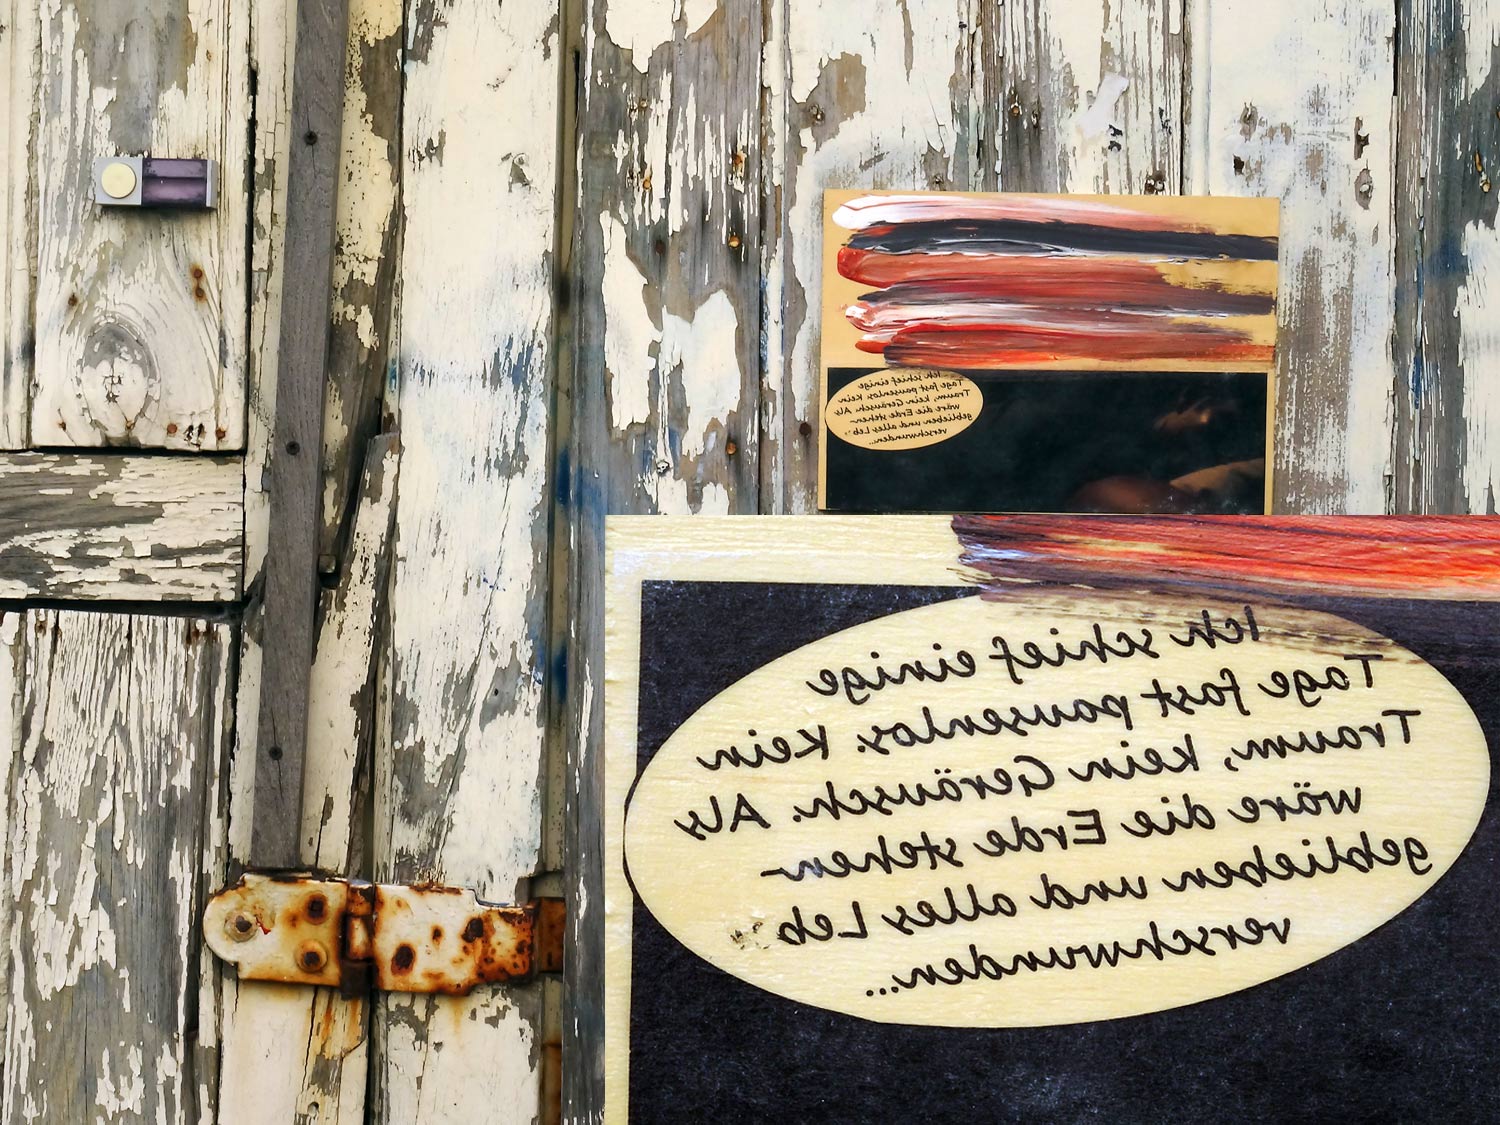 Ich schief einige
Tage fast pausenlos. Kein
Traum, kein Geräusch. Als
wäre die Erde stehen-
geblieben und alles Leb
verschwunden...
Ich schief einige
Tage fast pausenlos. Kein
Traum, kein Geräusch. Als
wäre die Erde stehen-
geblieben und alles Leb
verschwunden...